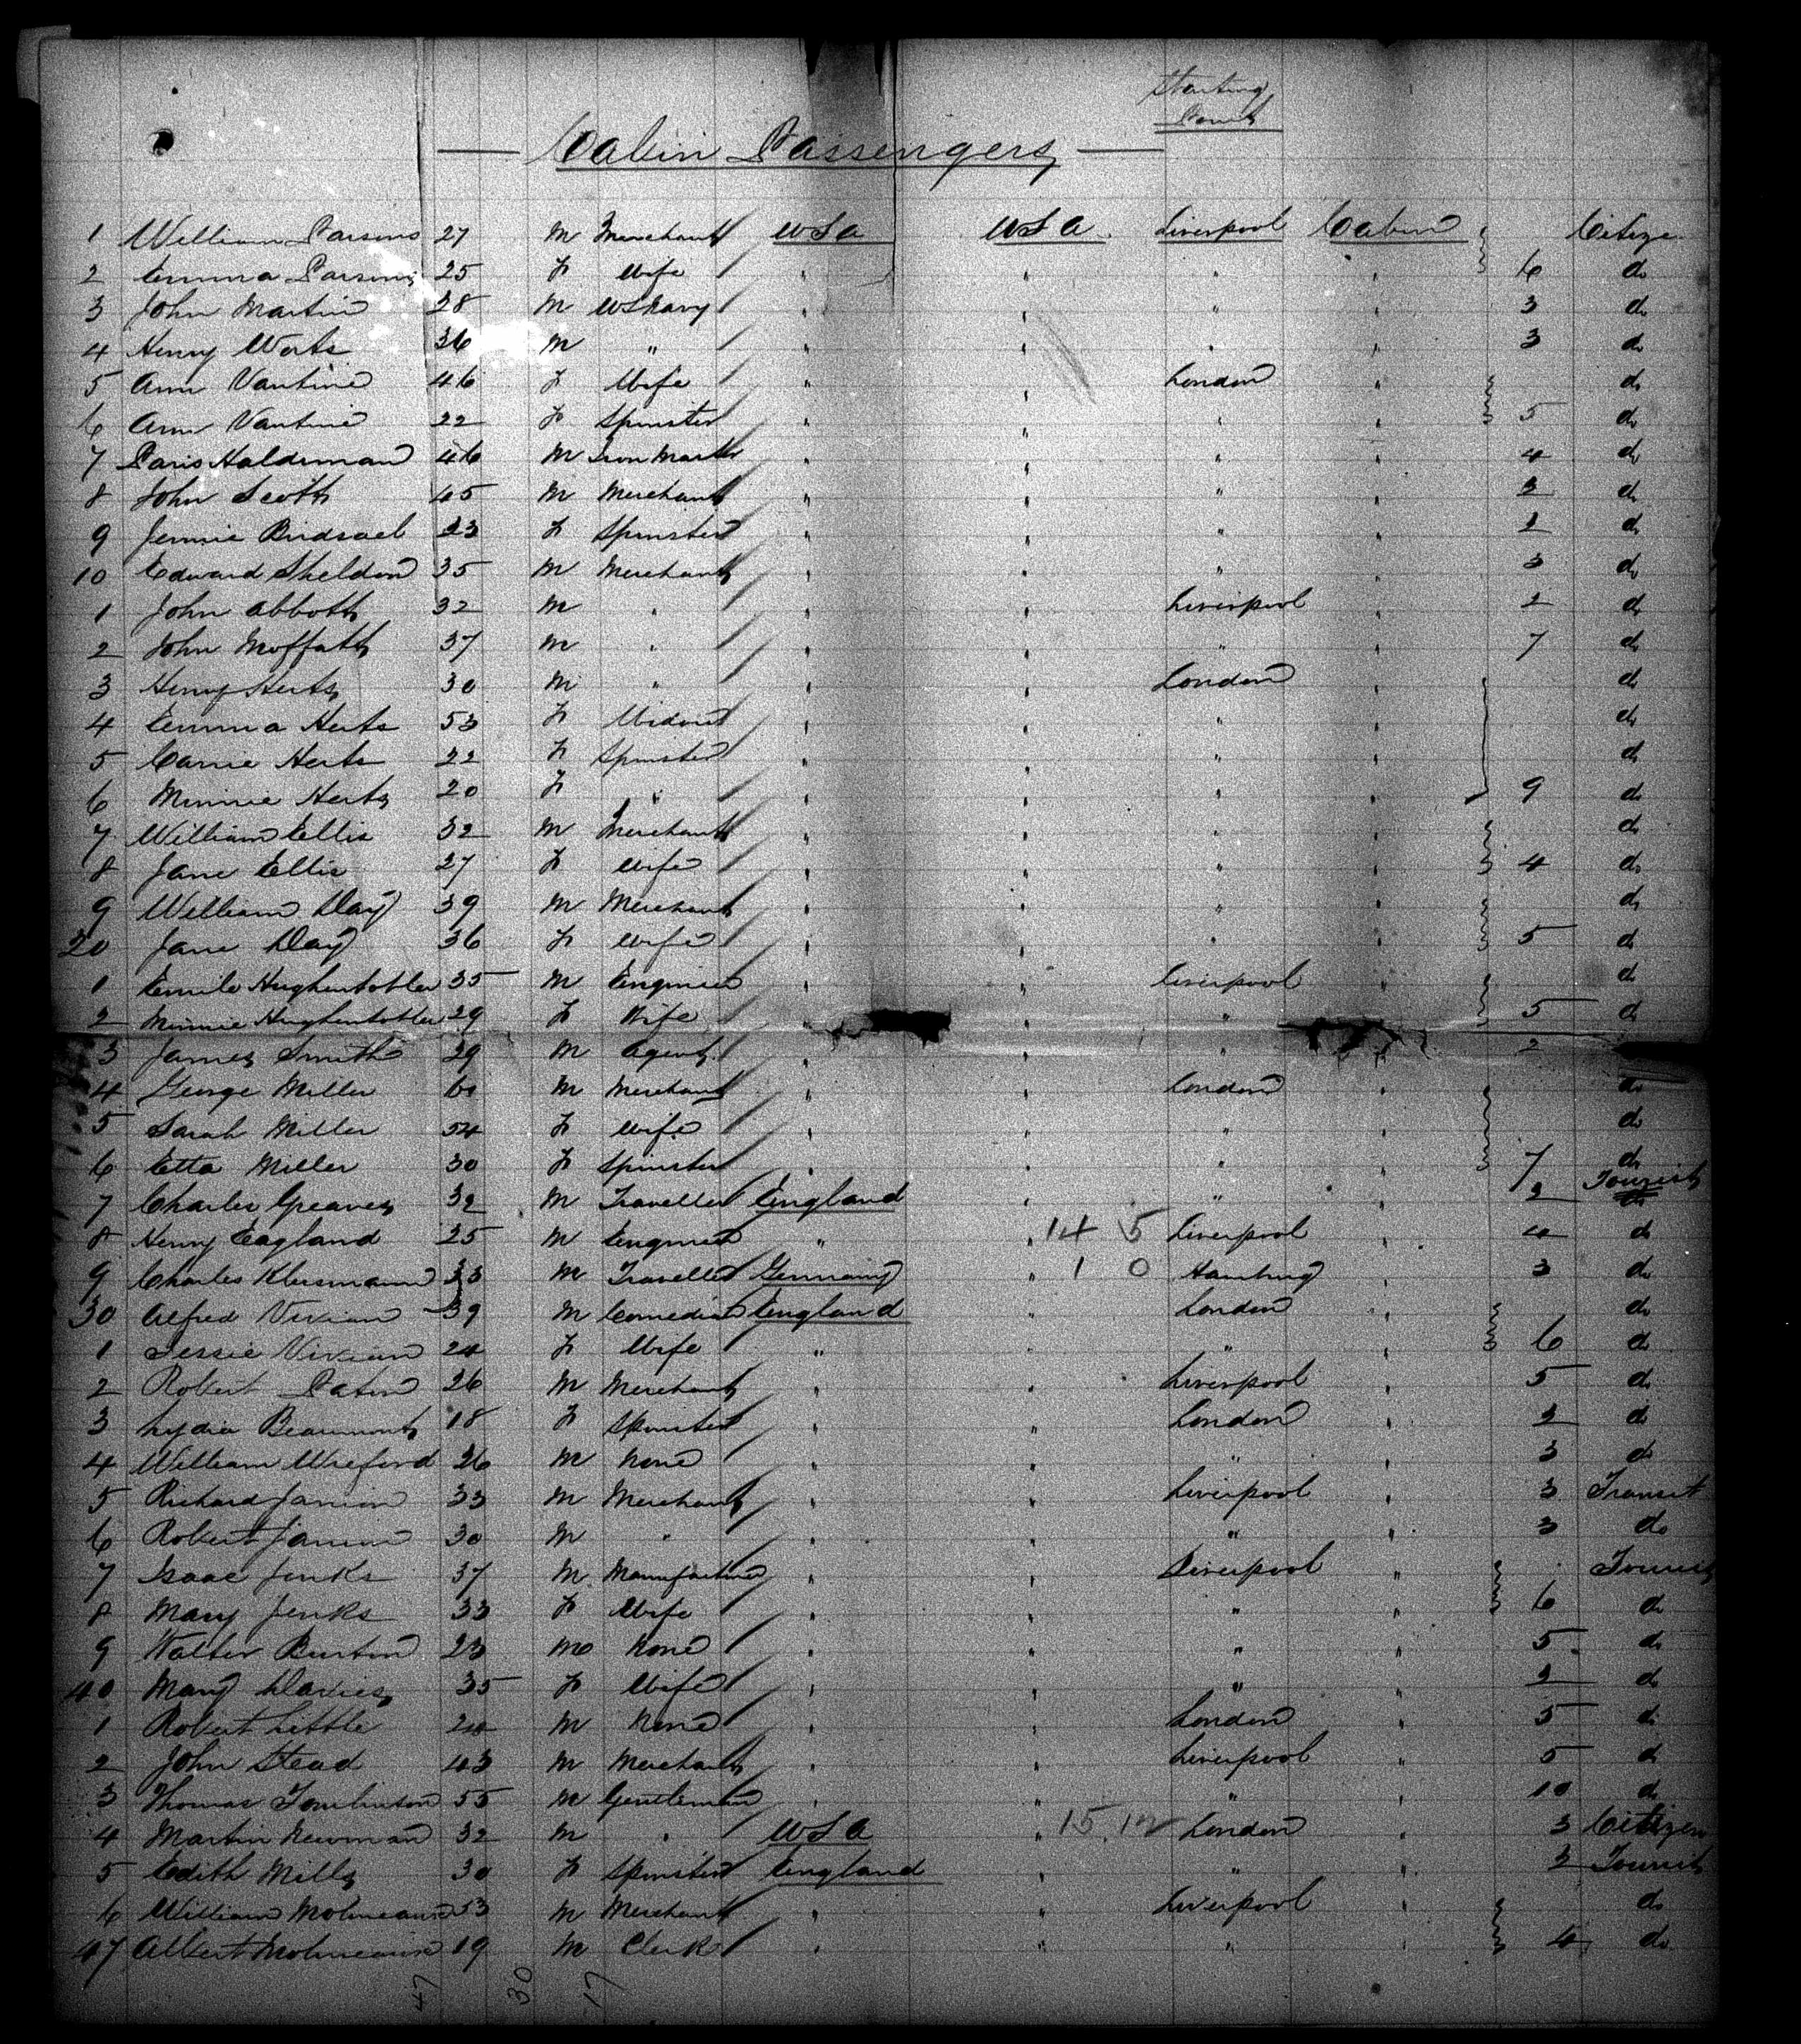 Starting
Point
Cabin Passengers
1 William Parsons 27 M Merchant USA USA Liverpool Cabin Citizen
2 Emma Parsons 25 F Wife " " " " 6 do
3 John Martin 28 M US Navy " " " " 3 do
4 Henry Werts 36 M " " " " " 3 do
5 Ann Vantine 46 F Wife " " London " do
6 Ann Vantine 22 F Spinster " " " " 5 do
7 Paris Haldeman 46 M Iron Master " " " " 4 do
8 John Scott 45 M Merchant " " " " 2 do
9 Jennie Birdsael 23 F Spinster " " " " 2 do
10 Edward Sheldon 35 M Merchant " " " " 3 do
1 John Abbott 32 M " " " Liverpool " 2 do
2 John Moffatt 37 M " " " " " 7 do
3 Henry Herts 30 M " " " London " do
4 Emma Herts 53 F Widow " " " " do
5 Carrie Herts 22 F Spinster " " " " do
6 Minnie Herts 20 F " " " " " 9 do
7 William Ellis 32 M Merchant " " " " do
8 Jane Ellis 27 F Wife " " " " 4 do
9 William Day 39 M Merchant " " " " do
20 Jane Day 36 F Wife " " " " 5 do
1 Emile Hughentobler 35 M Engineer " " Liverpool " do
2 Minnie Hughentobler 29 F Wife " " " " 5 do
3 James Smith 29 M Agent " " " " 2
4 George Miller 61 M Merchant " " London " do
5 Sarah Miller 54 F Wife " " " " do
6 Etta Miller 30 F Spinster " " " " 7 do
7 Charles Greaves 32 M Traveller England " " " 2 Tourist
8 Henry Eagland 25 M Engineer " " 14 5 Liverpool " 4 do
9 Charles Klusmann 33 M Traveller Germany " 1 0 Hamburg " 3 do
30 Alfred Vivian 39 M Comedian England " London " do
1 Jessie Vivian 24 F Wife " " " " 6 do
2 Robert Paton 26 M Merchant " " Liverpool " 5 do
3 Lydia Beaumont 18 F Spinster " " London " 2 do
4 William Wreford 26 M None " " " " 3 do
5 Richard Janion 33 M Merchant " " Liverpool " 3 Transit
6 Robert Janion 30 M " " " " " 3 do
7 Isaac Jenks 37 M Manufacturer " " Liverpool " Tourist
8 Mary Jenks 33 F Wife " " " " 6 do
9 Walter Burton 23 M None " " " " 5 do
40 Mary Davies 35 F Wife " " " " 2 do
1 Robert Little 24 M None " " London " 5 do
2 John Stead 43 M Merchant " " Liverpool " 5 do
3 Thomas Tomlinson 55 M Gentleman " " " " 10 do
4 Martin Newman 32 M " USA " 15 London " 3 Citizen
5 Edith Mills 30 F Spinster England " " " 2 Tourist
6 William Molineaux 53 M Merchant " " Liverpool " do
47 Albert Molineaux 19 M Clerk " " " " 4 do
47 30 17